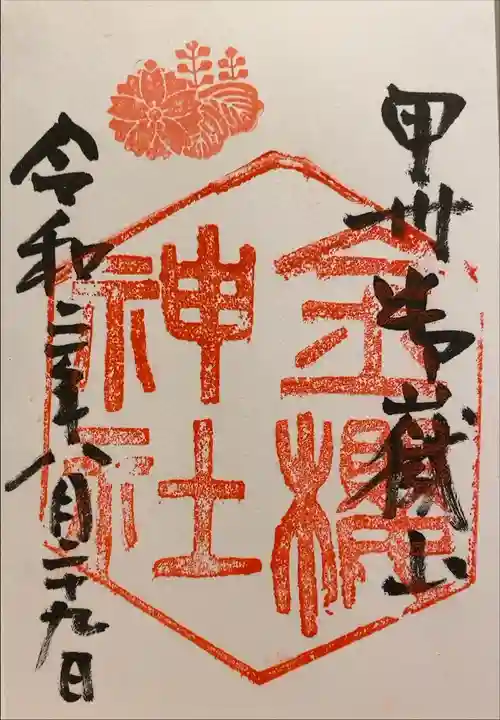 甲州御嶽山
金櫻神社
令和二年八月二十九日